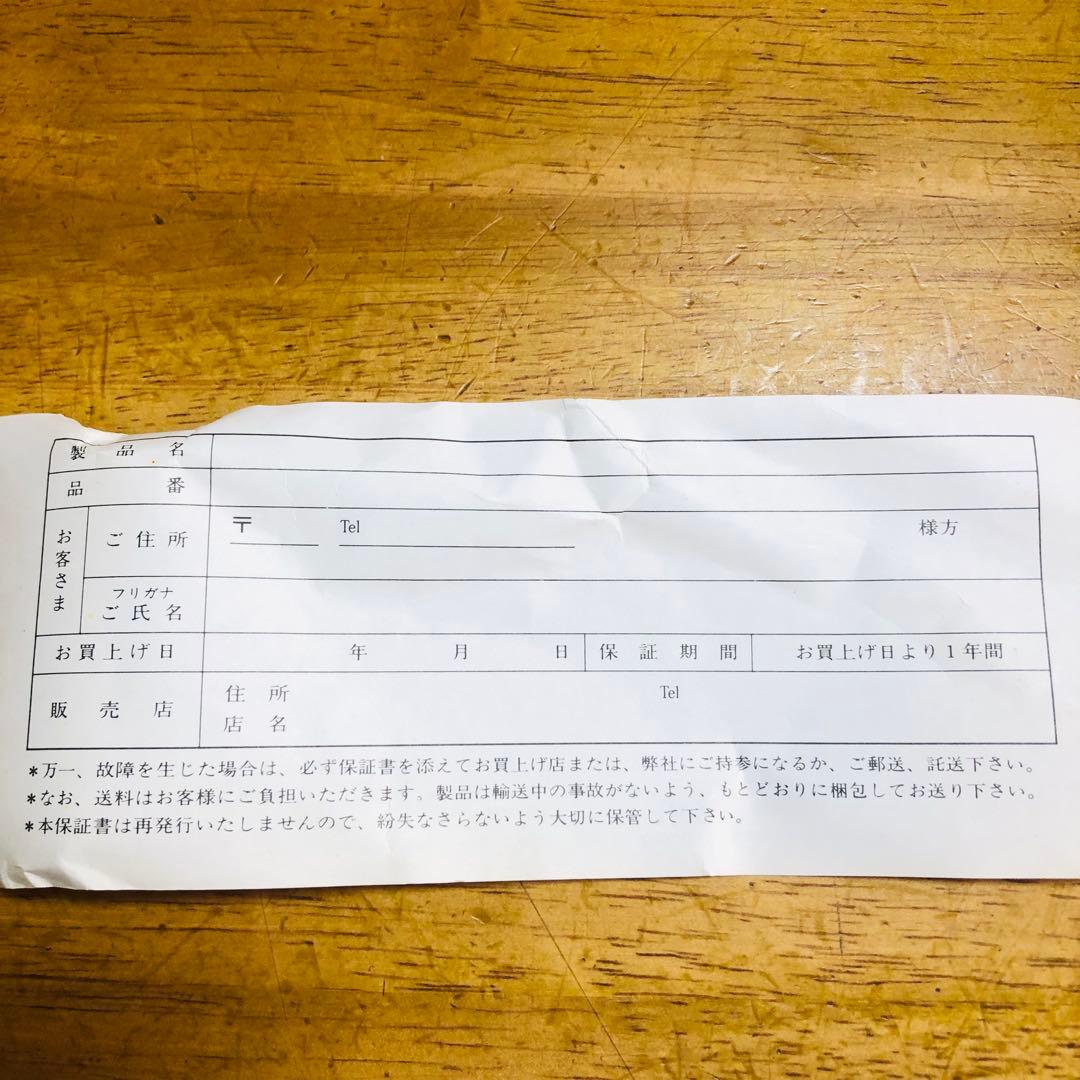 製品名
品番
お客さま ご住所 〒 Tel 様方
フリガナ
ご氏名
お買上げ日 年 月 日 保証期間 お買上げ日より1年間
販売店 住所 Tel
店名
*万一、故障を生じた場合は、必ず保証書を添えてお買上げ店または、弊社にご持参になるか、ご郵送、託送下さい。
*なお、送料はお客様にご負担いただきます。製品は輸送中の事故がないよう、もとどおりに梱包してお送り下さい。
*本保証書は再発行いたしませんので、紛失なさらないよう大切に保管して下さい。